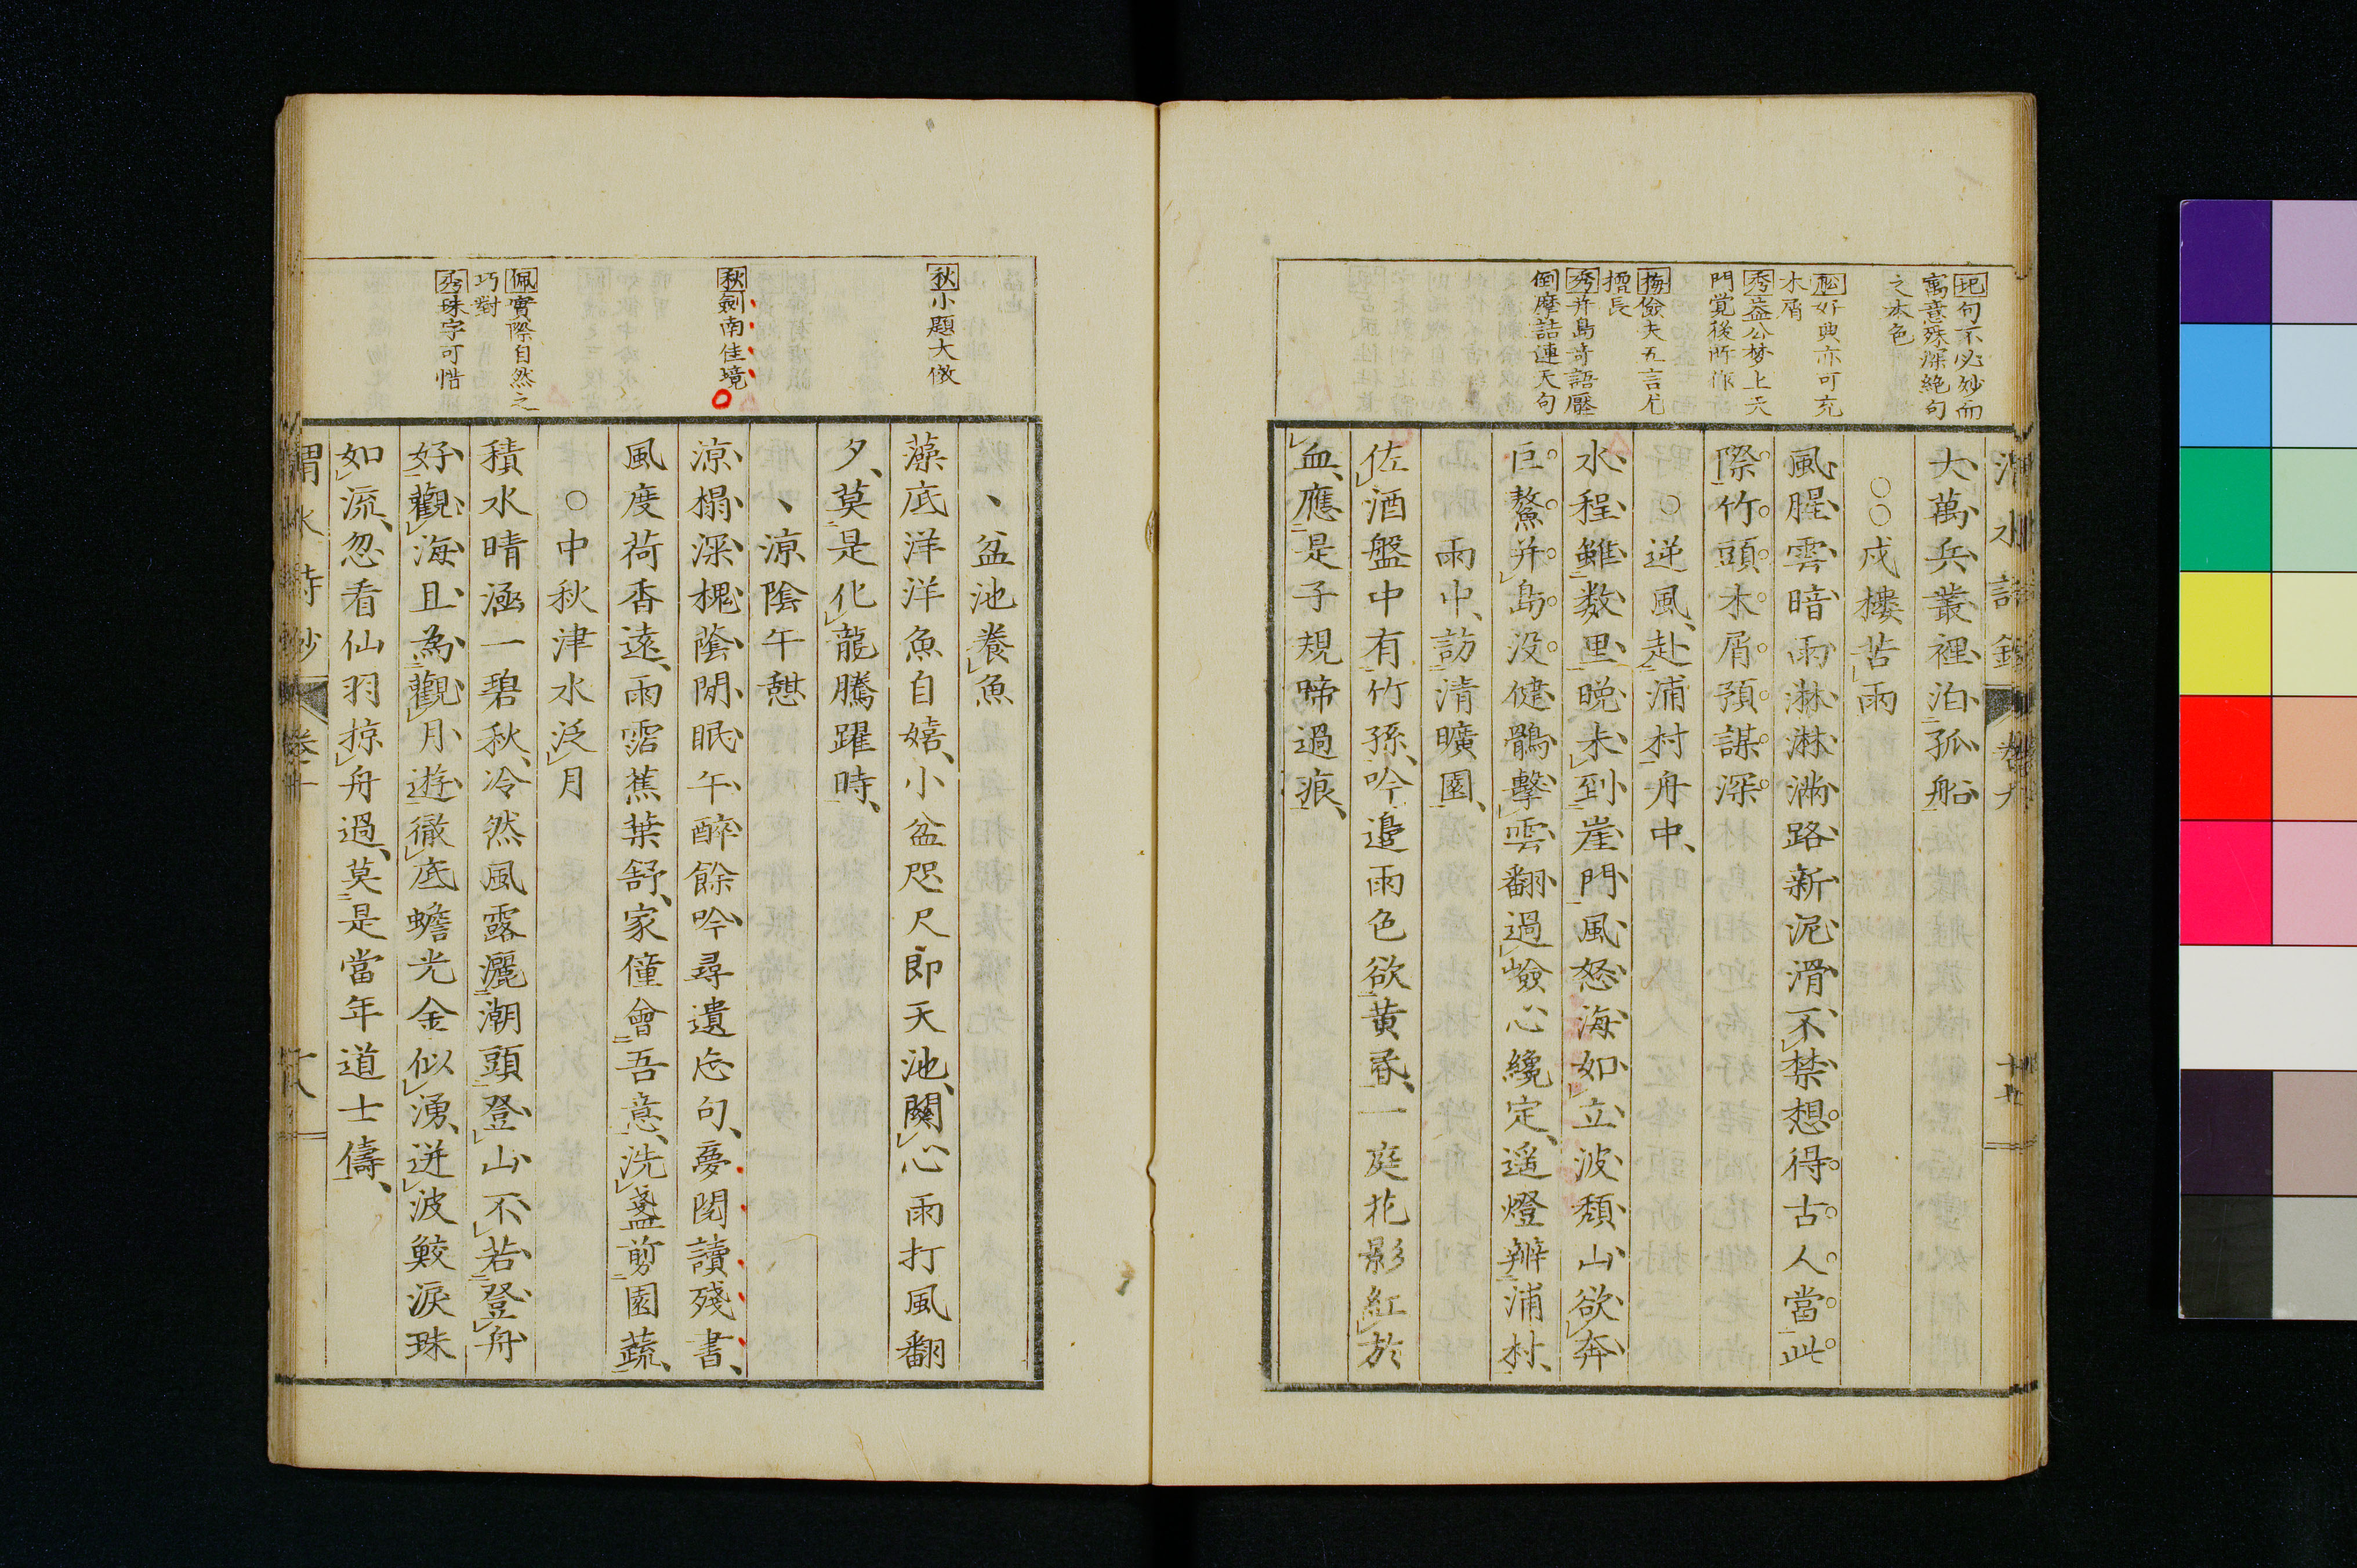 圯句不必妙而
寓意殊深絶句
之本色
松好典亦可充
木屑
秀益公梦上天
門覚後所作
梅儉夫五言尤
擅長
秀并島奇語壓
倒摩詰連天句
大萬兵叢裡泊孤船
○○戍樓苦雨
風腥雲暗雨淋淋滿路新泥滑不禁想得古人當此
際竹頭木屑預謀深
○逆風赴浦村舟中
水程雖数里晩未到崖門風怒海如立波頽山欲奔
巨鰲并島没健鶻擊雲翻過嶮心纔定遥燈辨浦村
雨中訪清曠園
佐酒盤中有竹孫吟邉雨色欲黄昏一庭花影紅於
血應是子規啼過痕
秋小題大傚
秋劍南佳境
佩實際自然之
巧對
秀珠字可惜
、盆池養魚
藻底洋洋魚自嬉小盆咫尺即天池關心雨打風翻
夕莫是化龍騰躍時
、涼陰午憇
涼榻深槐蔭閒眠午醉餘吟尋遺忘句夢閲讀殘書
風度荷香遠雨霑蕉葉舒家僮會吾意洗盞剪園蔬
○中秋津水泛月
積水晴涵一碧秋冷然風露灑潮頭登山不若登舟
好觀海且為觀月遊徹底蟾光金似湧迸波鮫淚珠
如流忽看仙羽掠舟過莫是當年道士儔